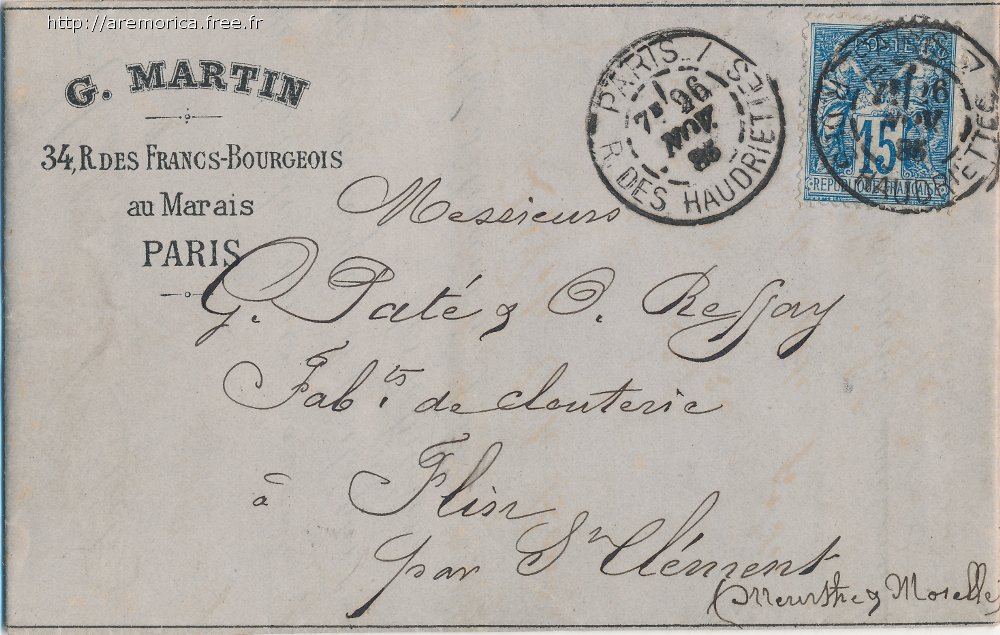 http://aremorica.free.fr
G. MARTIN
34, R. DES FRANCS-BOURGEOIS
au Marais
PARIS
PARIS 7
R. DES HAUDRIETTES
7E 26
NOV
POSTES
15
REPUBLIQUE FRANCAISE
Messieurs
G. Paté & O. Ressay
Fabts. de clouterie
à Flin
par St Clément
(Meurthe & Moselle)